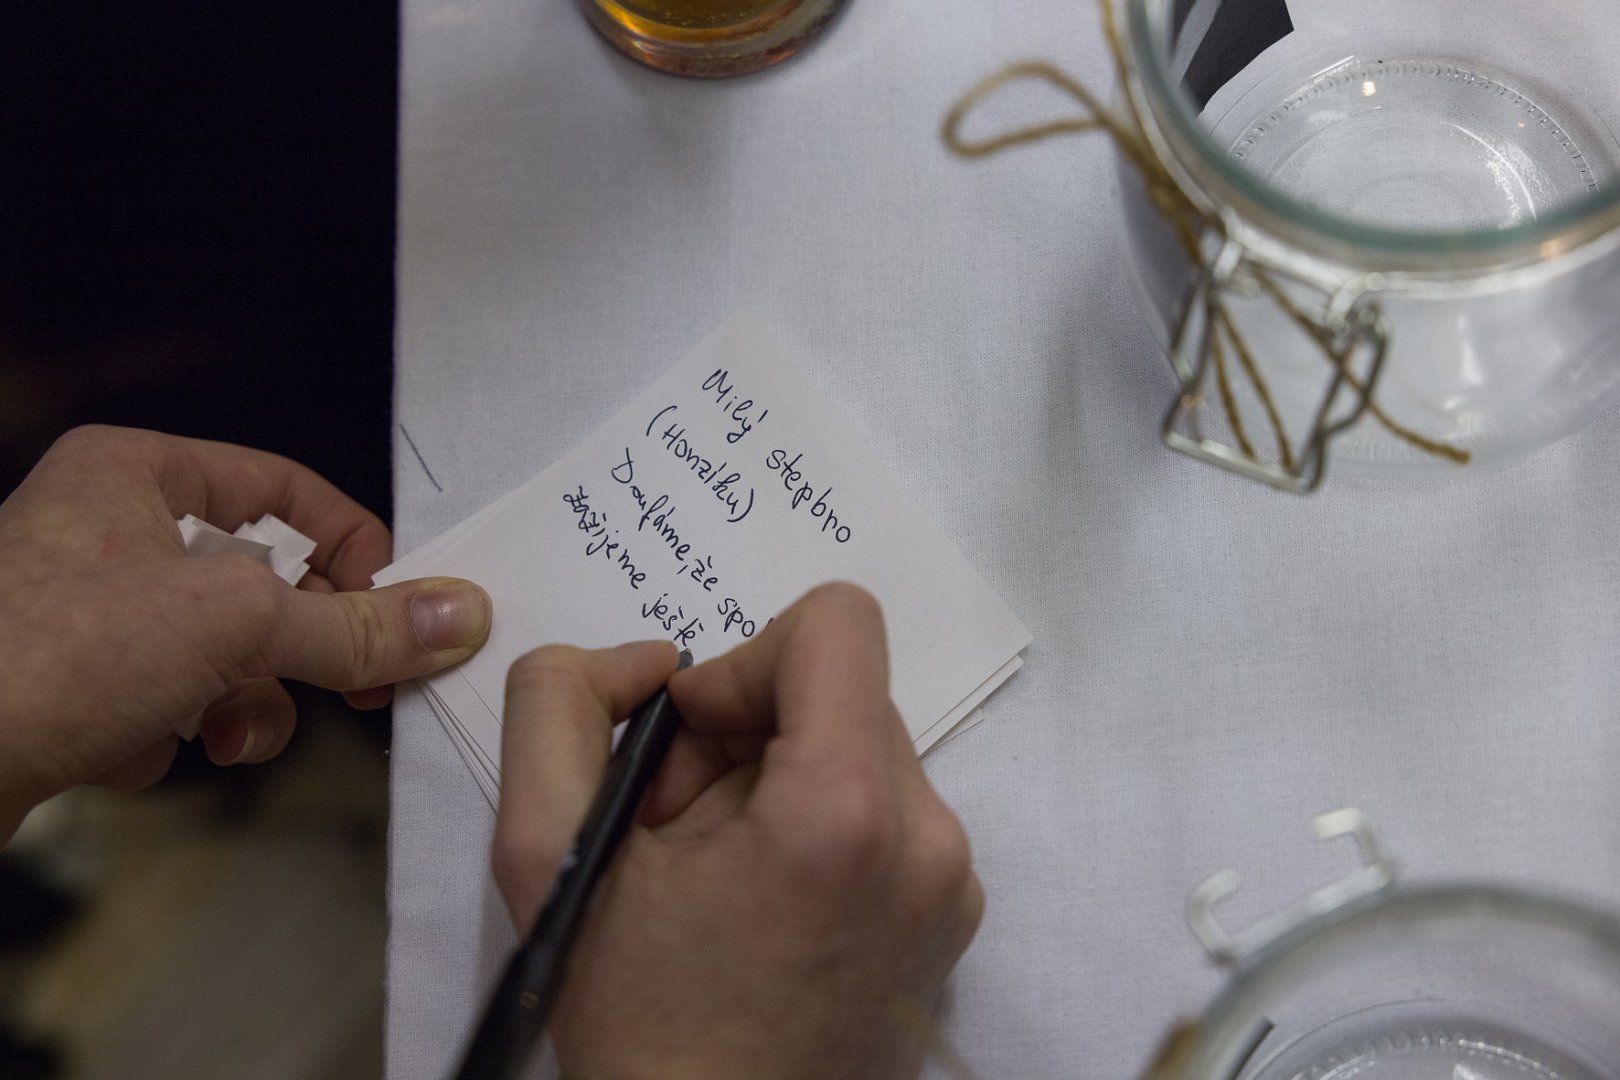 Milý stepbno
(Honzíku)
Doufáme, že
zažijeme ještě